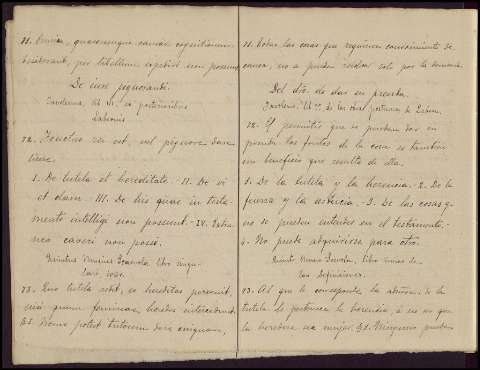 71. Omnia, quaecumque causae cognitionem
desiderant, per libellum expediri non possunt
De iure pignorante.
Javolenus, lib.
Labeonis
72. Fructus rei est, vel pignore dare
licere.
I. De tutela et hereditate. - II. De vi
et clam. - III. De his quae in testa-
mento intelligi non possunt. - IV. Extra-
neo caveri non posse.
Quintus Mucius Scaevola, libro singu-
lari,
73. Quo tutela redit, eo hereditas pervenit,
nisi quum feminae heredes intercedunt.
§1. Nemo potest tutorem dare cuiquam,
71. Todas las cosas que requieren conocimiento de
causa, no se pueden por la demanda
Del de dar en prenda.
Javoleno, de Labeon.
72. El permitir que se puedan dar en
prenda los frutos de la cosa es tambien
un beneficio que resulta de ella.
1. De la tutela y la herencia. - 2. De la
fuerza y la astucia. - 3. De las cosas q.
no se pueden entender en el testamento. -
4. No puede adquirirse para otro.
Quinto Mucio Scevola, libro unico de
las Definiciones.
73. Al que le corresponde la de la
tutela le pertenece la herencia, á no ser que
la heredera sea mujer. §1. Ninguno puede